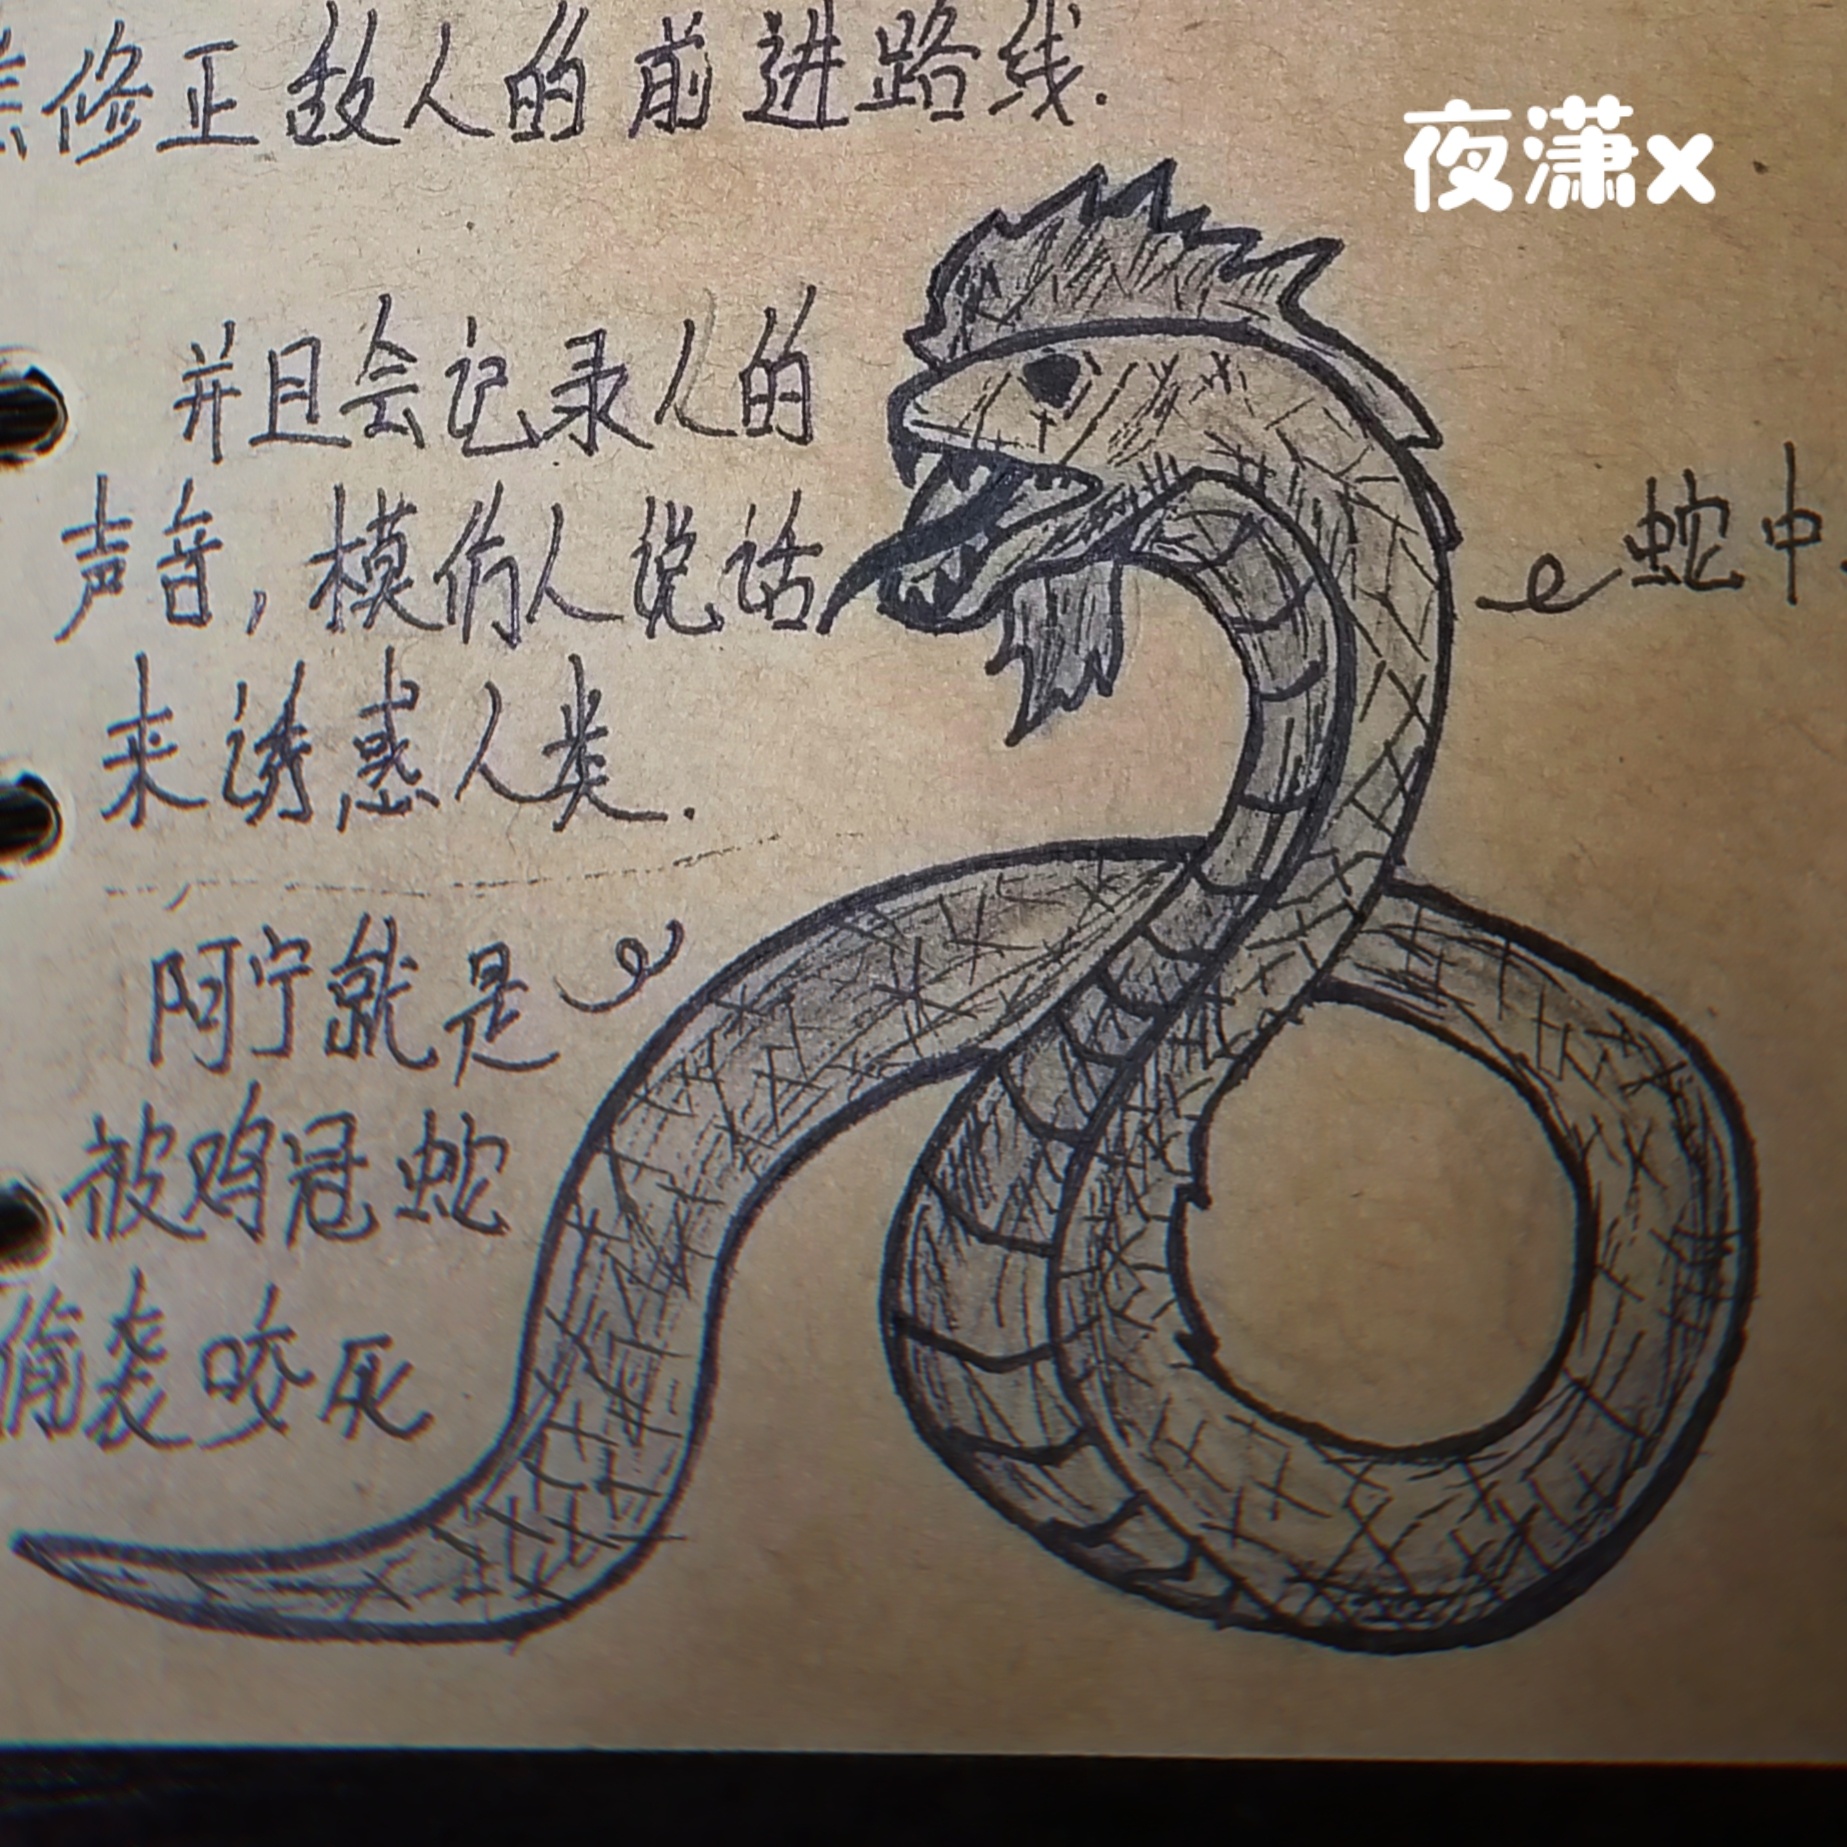 修正敌人的前进路线.
夜潇x
并且会记录人的
声音,模仿人说话
来诱惑人类.
蛇中
阿宁就是
被鸡冠蛇
偷袭咬死